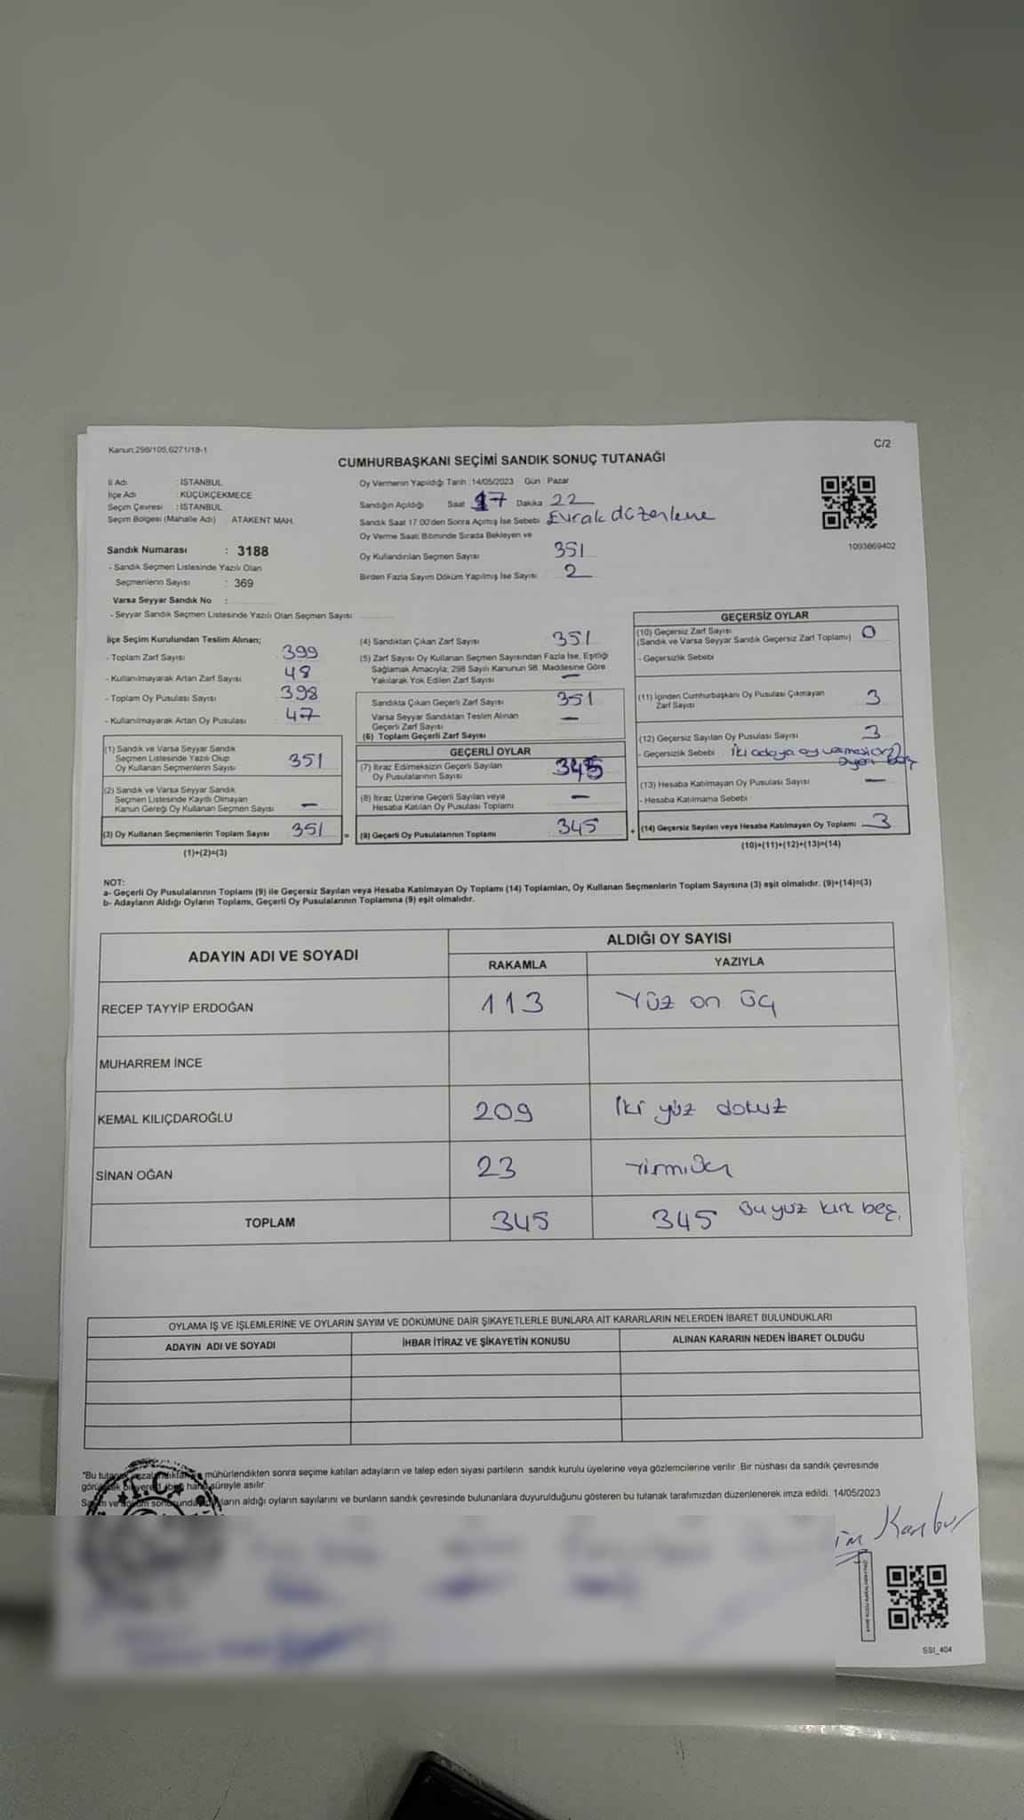 Kanun:298/105,6271/18-1
C/2
CUMHURBAŞKANI SEÇİMİ SANDIK SONUÇ TUTANAĞI
İl Adı : İSTANBUL
İlçe Adı : KÜÇÜKÇEKMECE
Seçim Çevresi : İSTANBUL
Seçim Bölgesi (Mahalle Adı) ATAKENT MAH.
Sandık Numarası : 3188
- Sandık Seçmen Listesinde Yazılı Olan
Seçmenlerin Sayısı : 369
Varsa Seyyar Sandık No :
- Seyyar Sandık Seçmen Listesinde Yazılı Olan Seçmen Sayısı
Oy Vermenin Yapıldığı Tarih :14/05/2023 Gün : Pazar
Sandığın Açıldığı Saat 17 Dakika 22
Sandık Saat 17.00'den Sonra Açılmış İse Sebebi Evrak düzenleme
Oy Verme Saati Bitiminde Sırada Bekleyen ve
Oy Kullandırılan Seçmen Sayısı 351
Birden Fazla Sayım Döküm Yapılmış İse Sayısı 2
1093869402
İlçe Seçim Kurulundan Teslim Alınan;
- Toplam Zarf Sayısı 399
- Kullanılmayarak Artan Zarf Sayısı 48
- Toplam Oy Pusulası Sayısı 398
- Kullanılmayarak Artan Oy Pusulası 47
(1) Sandık ve Varsa Seyyar Sandık
Seçmen Listesinde Yazılı Olup
Oy Kullanan Seçmenlerin Sayısı 351
(2) Sandık ve Varsa Seyyar Sandık
Seçmen Listesinde Kayıtlı Olmayan
Kanun Gereği Oy Kullanan Seçmen Sayısı –
(3) Oy Kullanan Seçmenlerin Toplam Sayısı 351 =
(1)+(2)=(3)
(4) Sandıktan Çıkan Zarf Sayısı 351
(5) Zarf Sayısı Oy Kullanan Seçmen Sayısından Fazla İse, Eşitliği
Sağlamak Amacıyla, 298 Sayılı Kanunun 98. Maddesine Göre
Yakılarak Yok Edilen Zarf Sayısı –
Sandıkta Çıkan Geçerli Zarf Sayısı 351
Varsa Seyyar Sandıktan Teslim Alınan
Geçerli Zarf Sayısı –
(6) Toplam Geçerli Zarf Sayısı
GEÇERLİ OYLAR
(7) İtiraz Edilmeksizin Geçerli Sayılan
Oy Pusulalarının Sayısı 345
(8) İtiraz Üzerine Geçerli Sayılan veya
Hesaba Katılan Oy Pusulası Toplamı –
(9) Geçerli Oy Pusulalarının Toplamı 345 +
GEÇERSİZ OYLAR
(10) Geçersiz Zarf Sayısı
(Sandık ve Varsa Seyyar Sandık Geçersiz Zarf Toplamı) 0
- Geçersizlik Sebebi
(11) İçinden Cumhurbaşkanı Oy Pusulası Çıkmayan
Zarf Sayısı 3
(12) Geçersiz Sayılan Oy Pusulası Sayısı 3
- Geçersizlik Sebebi İki adaya oy
(13) Hesaba Katılmayan Oy Pusulası Sayısı –
- Hesaba Katılmama Sebebi
(14) Geçersiz Sayılan veya Hesaba Katılmayan Oy Toplamı 3
(10)+(11)+(12)+(13)=(14)
NOT:
a- Geçerli Oy Pusulalarının Toplamı (9) ile Geçersiz Sayılan veya Hesaba Katılmayan Oy Toplamı (14) Toplamları, Oy Kullanan Seçmenlerin Toplam Sayısına (3) eşit olmalıdır. (9)+(14)=(3)
b- Adayların Aldığı Oyların Toplamı, Geçerli Oy Pusulalarının Toplamına (9) eşit olmalıdır.
ADAYIN ADI VE SOYADI
ALDIĞI OY SAYISI
RAKAMLA YAZIYLA
RECEP TAYYİP ERDOĞAN 113 Yüz on üç
MUHARREM İNCE
KEMAL KILIÇDAROĞLU 209 İki yüz dokuz
SİNAN OĞAN 23 Yirmi üç
TOPLAM 345 345 yüz kırk beş
OYLAMA İŞ VE İŞLEMLERİNE VE OYLARIN SAYIM VE DÖKÜMÜNE DAİR ŞİKAYETLERLE BUNLARA AİT KARARLARIN NELERDEN İBARET BULUNDUKLARI
ADAYIN ADI VE SOYADI İHBAR İTİRAZ VE ŞİKAYETİN KONUSU ALINAN KARARIN NEDEN İBARET OLDUĞU
"Bu mühürlendikten sonra seçime katılan adayların ve talep eden siyasi partilerin sandık kurulu üyelerine veya gözlemcilerine verilir. Bir nüshası da sandık çevresinde
süreyle asılır.
aldığı oyların sayılarını ve bunların sandık çevresinde bulunanlara duyurulduğunu gösteren bu tutanak tarafımızdan düzenlenerek imza edildi. 14/05/2023
T.C.
SSI_404